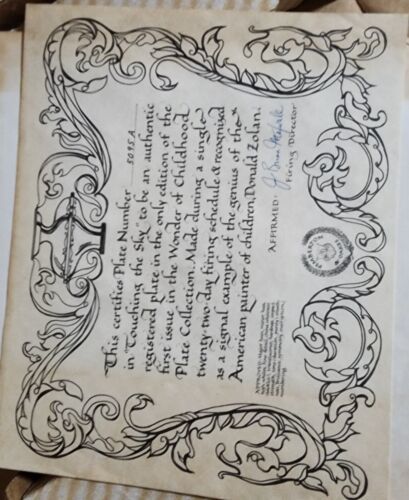 This certifies Plate Number
5095A
in "Touching the Sky" to be an authentic
registered plate in the only edition of the
first issue in the Wonder of Childhood
Plate Collection. Made during a single
twenty-two-day firing schedule & recognized
as a signal example of the genius of the
American painter of children, Donald Zolan.
AFFIRMED:
Firing Director